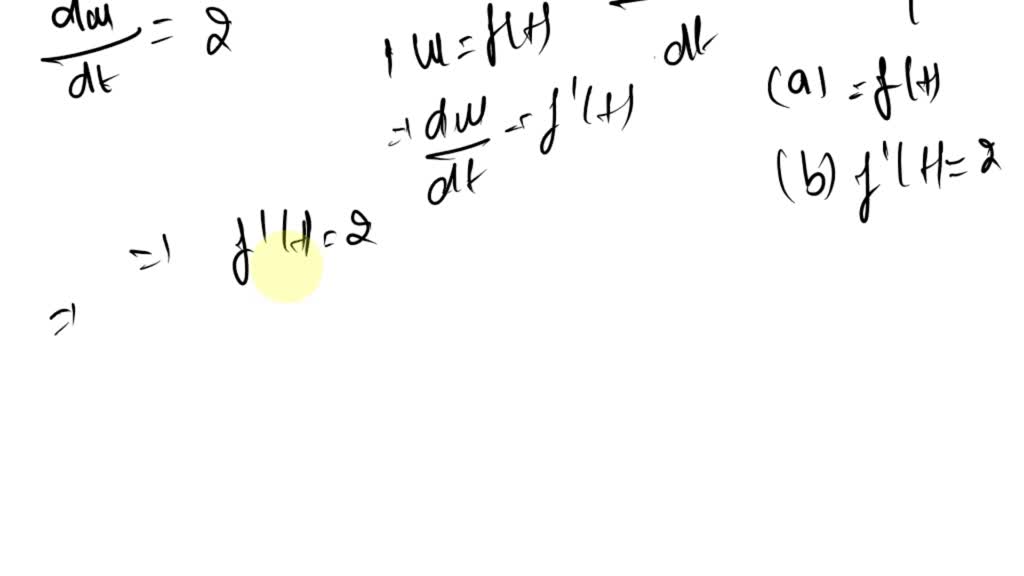 dw/dt = 2
, w = f(t)
⇒ dw/dt = f'(t)
dt
(a) = f(t)
(b) f'(t) = 2
⇒ f'(t) = 2
⇒